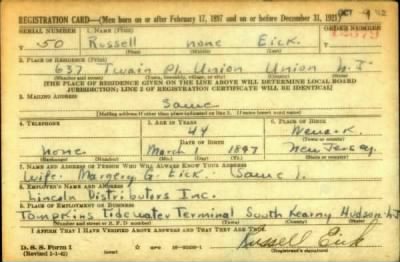 REGISTRATION CARD—(Men born on or after February 17, 1897 and on or before December 31, 1921)
SERIAL NUMBER 1. NAME (Print) ORDER NUMBER
V 50 Russell none Eick.
(First) (Middle) (Last)
2. PLACE OF RESIDENCE (Print)
637 Twain Pl. Union Union N.J.
(Number and street) (Town, township, village, or city) (County) (State)
[THE PLACE OF RESIDENCE GIVEN ON THE LINE ABOVE WILL DETERMINE LOCAL BOARD
JURISDICTION; LINE 2 OF REGISTRATION CERTIFICATE WILL BE IDENTICAL]
3. MAILING ADDRESS
Same
[Mailing address if other than place indicated on line 2. If same insert word same]
4. TELEPHONE 5. AGE IN YEARS 6. PLACE OF BIRTH
44 Newark
DATE OF BIRTH (Town or county)
none March 1 1897 New Jersey
(Exchange) (Number) (Mo.) (Day) (Yr.) (State or country)
7. NAME AND ADDRESS OF PERSON WHO WILL ALWAYS KNOW YOUR ADDRESS
Wife. Margery G. Eick. Same
8. EMPLOYER'S NAME AND ADDRESS
Lincoln Distributors Inc.
9. PLACE OF EMPLOYMENT OR BUSINESS
Tompkins Tidewater Terminal South Kearny Hudson N.J.
(Number and street or R. F. D. number) (Town) (County) (State)
I AFFIRM THAT I HAVE VERIFIED ABOVE ANSWERS AND THAT THEY ARE TRUE.
D. S. S. Form 1
(Revised 1-1-42) Russell Eick